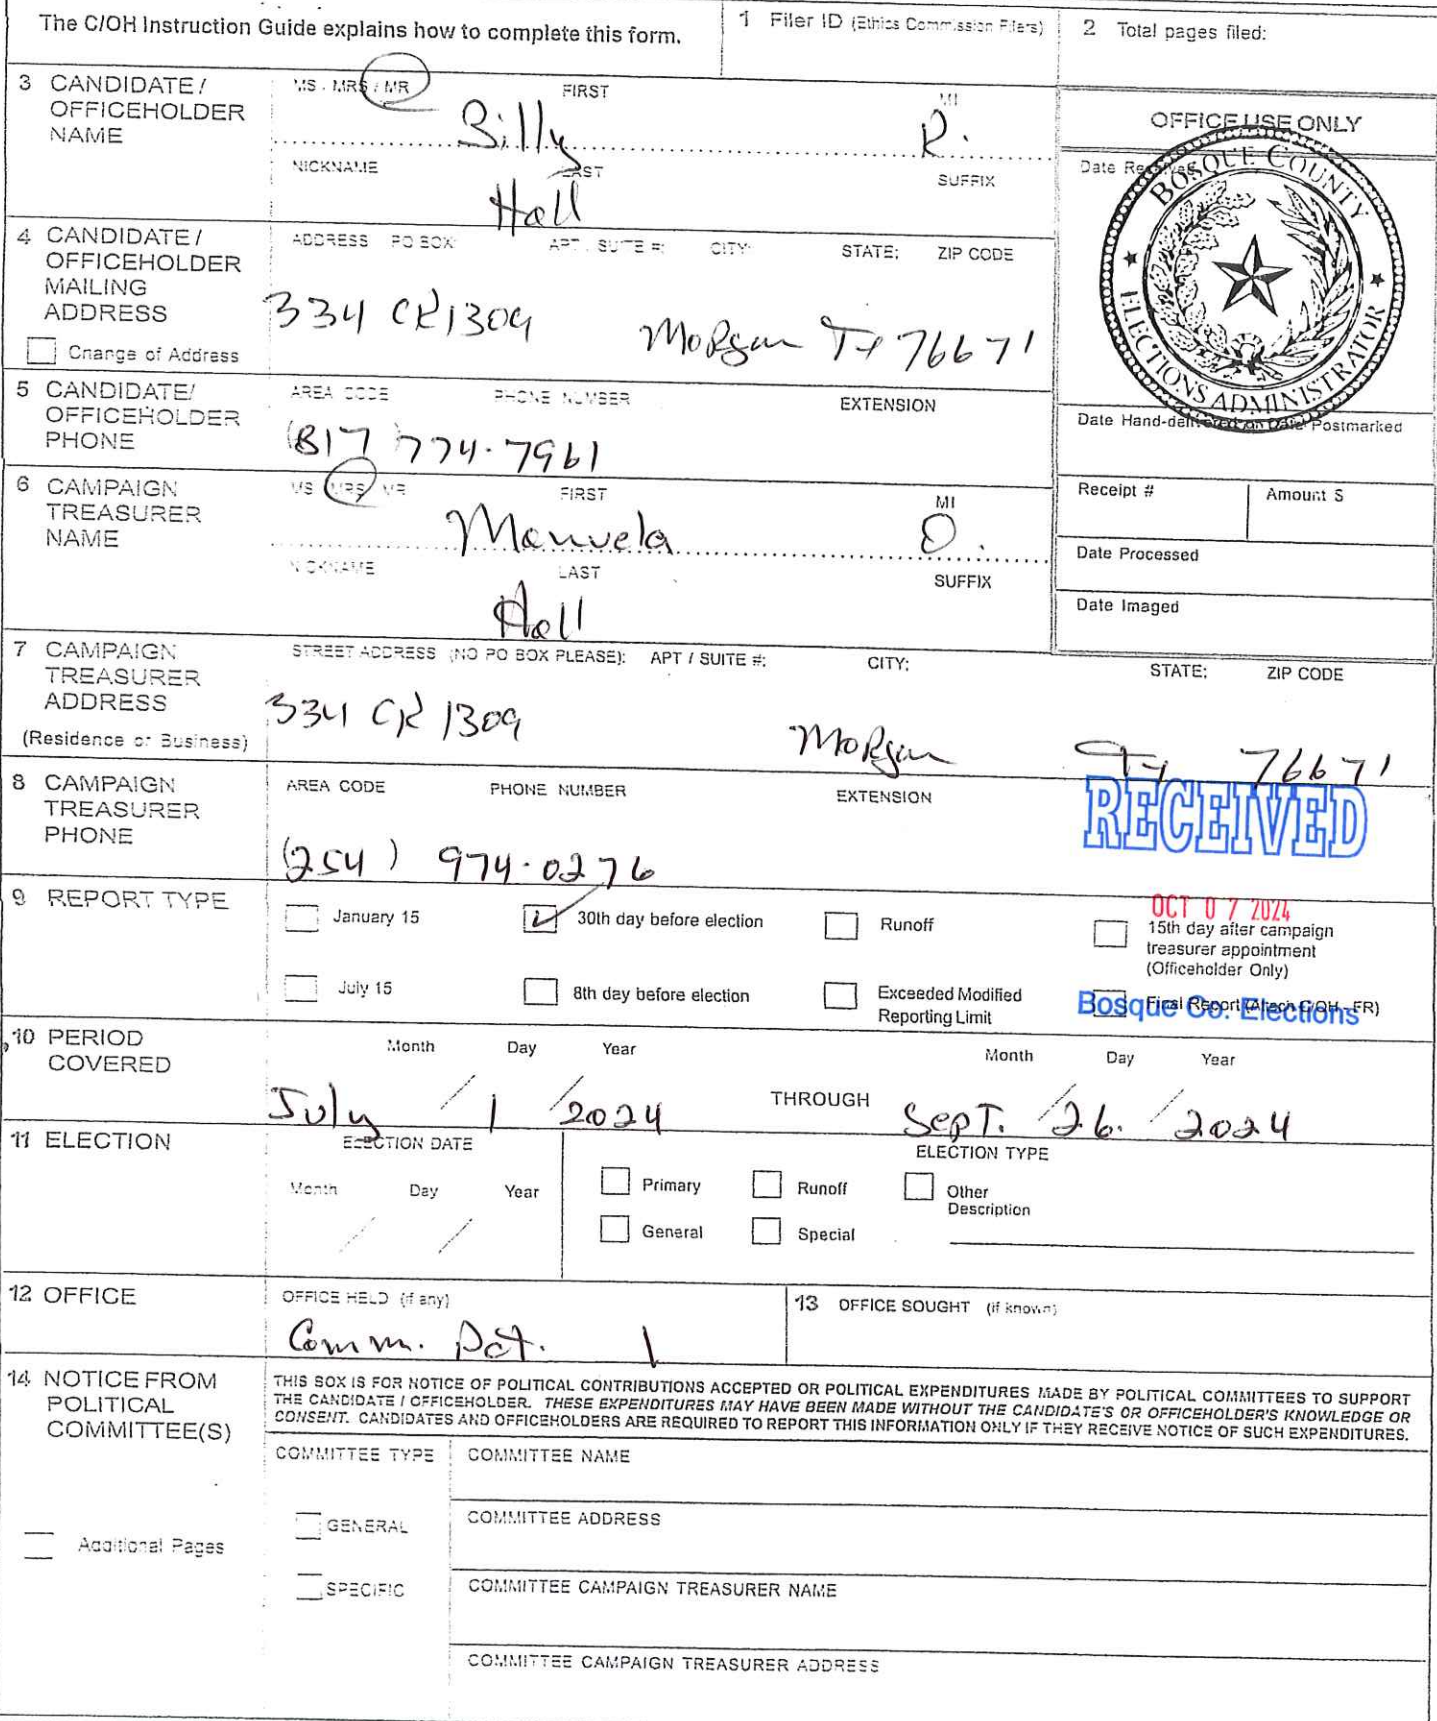 The C/OH Instruction Guide explains how to complete this form.
1 Filer ID (Ethics Commission Filers)
2 Total pages filed:
3 CANDIDATE / OFFICEHOLDER NAME
MS / MRS / MR FIRST MI
Billy R.
NICKNAME LAST SUFFIX
Hall
OFFICE USE ONLY
Date Received
BOSQUE COUNTY
ELECTIONS ADMINISTRATOR
4 CANDIDATE / OFFICEHOLDER MAILING ADDRESS
Change of Address
ADDRESS / PO BOX; APT / SUITE #; CITY; STATE; ZIP CODE
334 CR 1309 Morgan Tx 76671
5 CANDIDATE/ OFFICEHOLDER PHONE
AREA CODE PHONE NUMBER EXTENSION
(817) 774-7961
Date Hand-delivered or Date Postmarked
6 CAMPAIGN TREASURER NAME
MS / MRS / MR FIRST MI
Manuela O.
NICKNAME LAST SUFFIX
Hall
Receipt # Amount $
Date Processed
Date Imaged
7 CAMPAIGN TREASURER ADDRESS
(Residence or Business)
STREET ADDRESS (NO PO BOX PLEASE); APT / SUITE #; CITY; STATE; ZIP CODE
334 CR 1309 Morgan Tx 76671
8 CAMPAIGN TREASURER PHONE
AREA CODE PHONE NUMBER EXTENSION
(254) 974-0276
RECEIVED
OCT 07 2024
Bosque Co. Elections
9 REPORT TYPE
January 15
30th day before election
Runoff
15th day after campaign
treasurer appointment
(Officeholder Only)
July 15
8th day before election
Exceeded Modified
Reporting Limit
Final Report (Attach C/OH - FR)
10 PERIOD COVERED
Month Day Year Month Day Year
July / 1 / 2024 THROUGH Sept. / 26. / 2024
11 ELECTION
ELECTION DATE
Month Day Year
/ /
ELECTION TYPE
Primary Runoff Other
Description
General Special
12 OFFICE
OFFICE HELD (if any)
Comm. Pct. 1
13 OFFICE SOUGHT (if known)
14 NOTICE FROM POLITICAL COMMITTEE(S)
THIS BOX IS FOR NOTICE OF POLITICAL CONTRIBUTIONS ACCEPTED OR POLITICAL EXPENDITURES MADE BY POLITICAL COMMITTEES TO SUPPORT
THE CANDIDATE / OFFICEHOLDER. THESE EXPENDITURES MAY HAVE BEEN MADE WITHOUT THE CANDIDATE'S OR OFFICEHOLDER'S KNOWLEDGE OR
CONSENT. CANDIDATES AND OFFICEHOLDERS ARE REQUIRED TO REPORT THIS INFORMATION ONLY IF THEY RECEIVE NOTICE OF SUCH EXPENDITURES.
COMMITTEE TYPE
GENERAL
SPECIFIC
COMMITTEE NAME
COMMITTEE ADDRESS
COMMITTEE CAMPAIGN TREASURER NAME
COMMITTEE CAMPAIGN TREASURER ADDRESS
Additional Pages